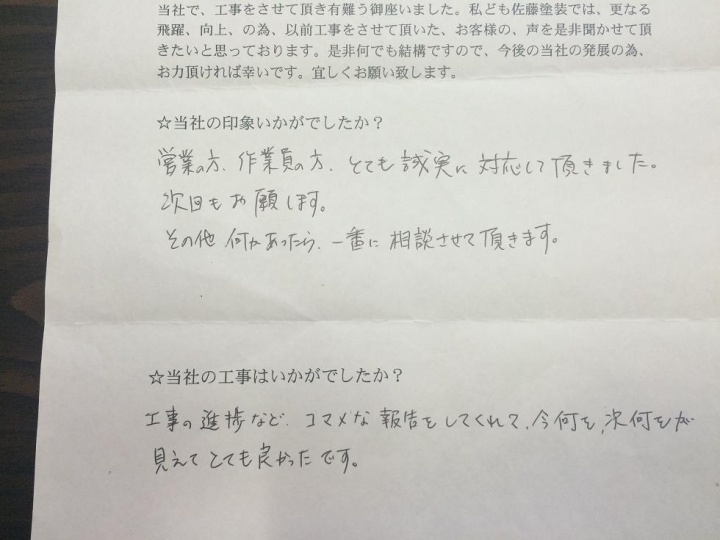 当社で、工事をさせて頂き有難う御座いました。私ども佐藤塗装では、更なる
飛躍、向上、の為、以前工事をさせて頂いた、お客様の、声を是非聞かせて頂
きたいと思っております。是非何でも結構ですので、今後の当社の発展の為、
お力頂ければ幸いです。宜しくお願い致します。
☆当社の印象いかがでしたか？
営業の方、作業員の方、とても誠実に対応して頂きました。
次回もお願します。
その他何かあったら、一番に相談させて頂きます。
☆当社の工事はいかがでしたか？
工事の進捗など、コマメな報告をしてくれて、今何を、次何をが
見えてとても良かったです。